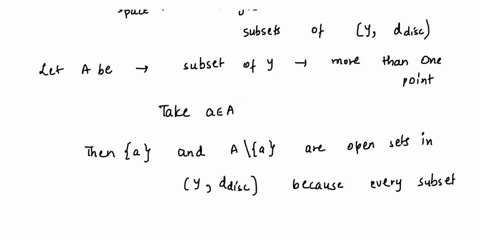 subsets of (Y, d disc)
Let A be → subset of y → more than One
point
Take a∈A
Then {a} and A\{a} are open sets in
(Y, d disc) because every subset